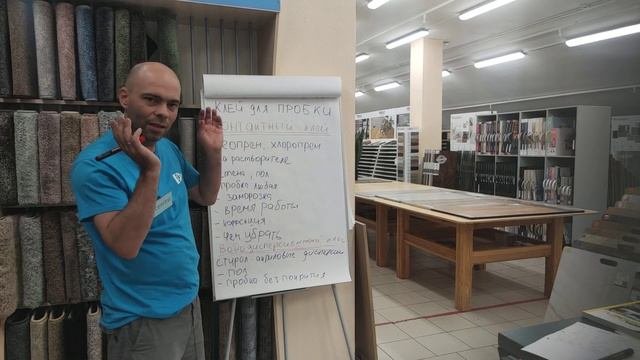 КЛЕЙ ДЛЯ ПРОБКИ
КОНТАКТНЫЙ КЛЕЙ
хлоропрен
растворителе
пол
пробка любая
заморозка
- время работы
- чем убрать
Воднодисперсионный клей
стирол-акриловые дисперсии
- пол
- пробка без покрытия